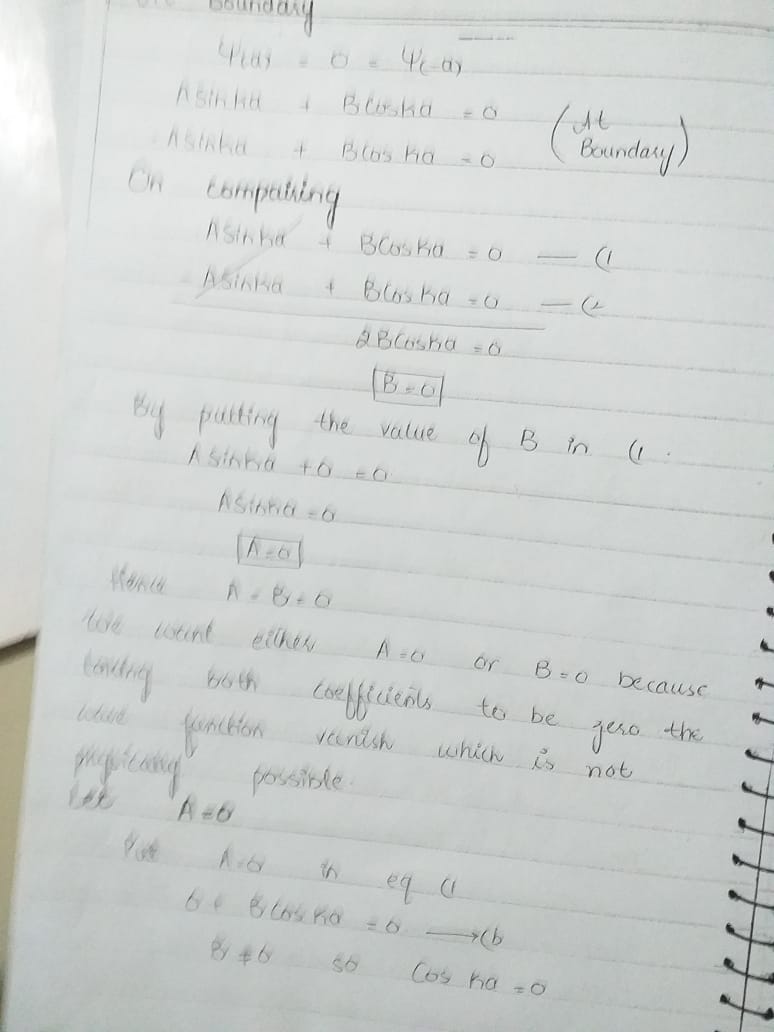 Boundary
Ψ(a) = 0 = Ψ(-a)
A sin ka + B cos ka = 0 (At
-A sin ka + B cos ka = 0 Boundary)
On compairing
A sin ka + B cos ka = 0 — (1
-A sin ka + B cos ka = 0 — (2
2B cos ka = 0
B = 0
By putting the value of B in (1.
A sin ka + 0 = 0
A sin ka = 0
A = 0
Hence A = B = 0
We want either A = 0 or B = 0 because
taking both coefficients to be zero the
wave function vanish which is not
physically possible.
Let A = 0
Put A = 0 in eq (1
0 + B cos ka = 0 → (b
B ≠ 0 so Cos ka = 0